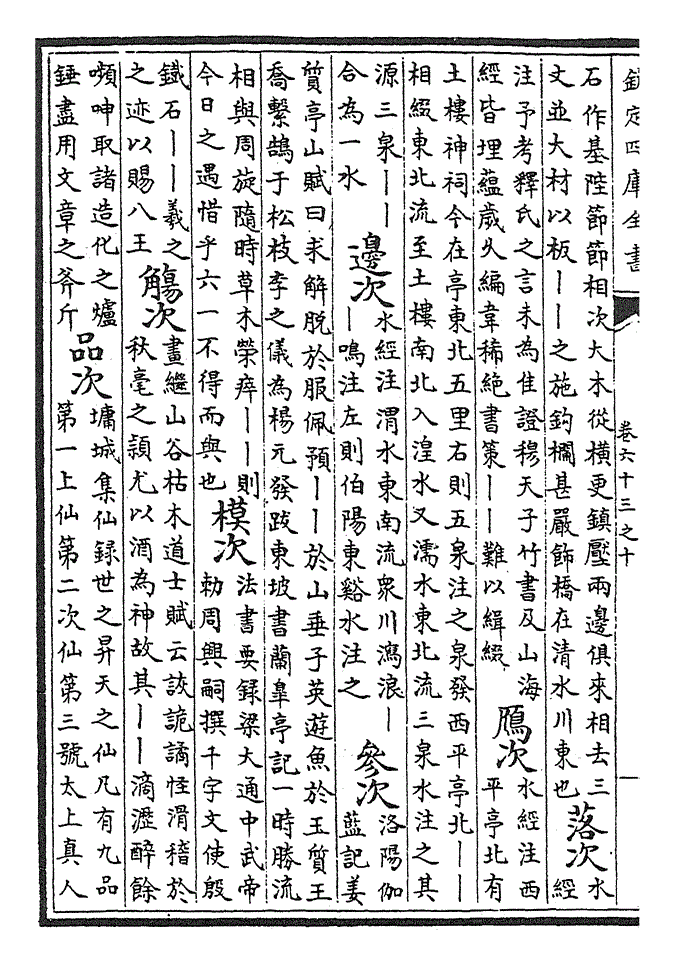 欽定四庫全書
卷六十三之十
石作基陛節節相次大木從橫更鎮壓兩邊俱來相去三
文並大材以板——之施鈎欄甚嚴飾橋在清水川東也
落次
水
經
注予考釋氏之言未為佳證穆天子竹書及山海
經皆埋蘊歲久編韋稀絶書策——難以緝綴
鴈次
水經注西
平亭北有
土樓神祠今在亭東北五里右則五泉注之泉發西平亭北——
相綴東北流至土樓南北入湟水又濡水東北流三泉水注之其
源三泉——
合為一水
邊次
水經注渭水東南流衆川瀉浪—
—鳴注左則伯陽東谿水注之
參次
洛陽伽
藍記姜
質亭山賦曰求解脱於服佩預——於山垂子英遊魚於玉質王
喬繫鵠于松枝李之儀為楊元發跋東坡書蘭臯亭記一時勝流
相與周旋隨時草木榮瘁——則
今日之遇惜乎六一不得而與也
模次
法書要録梁大通中武帝
勅周興嗣撰千字文使殷
鐵石——羲之
之迹以賜八王
觴次
畫繼山谷枯木道士賦云詼詭譎恠滑稽於
秋毫之頴尤以酒為神故其——滴瀝醉餘
嚬呻取諸造化之爐
錘盡用文章之斧斤
品次
墉城集仙録世之昇天之仙凡有九品
第一上仙第二次仙第三號太上真人